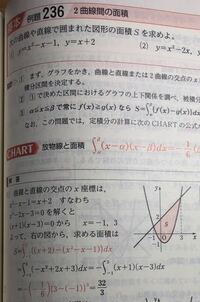 基本 例題 236 2曲線間の面積
曲線や直線で囲まれた図形の面積 S を求めよ。
(1) y=x²-x-1, y=x+2 (2) y=x²-2x,
① まず，グラフをかき，曲線と直線または2曲線の交点の
積分区間を決定する。
② ① で決めた区間におけるグラフの上下関係を調べ，被積分
③ α≦x≦β で常に f(x)≧g(x) なら S=∫{f(x)-g(x)}dx
なお，この問題では，定積分の計算に次の CHART の公式が
CHART 放物線と面積 ∫(x-α)(x-β)dx=-1/6(
曲線と直線の交点の x 座標は，
x²-x-1=x+2 すなわち
x²-2x-3=0 を解くと
(x+1)(x-3)=0 から x=-1, 3
よって，右の図から，求める面積は
S=∫{(x+2)-(x²-x-1)}dx
=∫(-x²+2x+3)dx=-∫(x+1)(x-3)dx
=-(-1/6){3-(-1)}³=32/3
y
S
-1 0